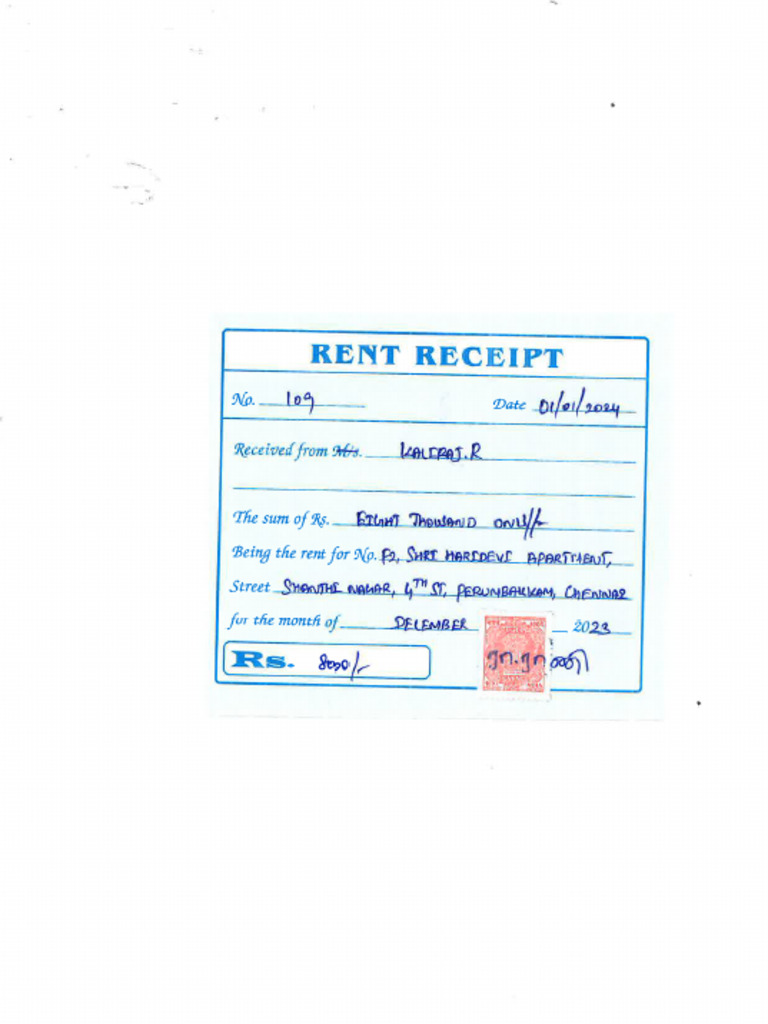 RENT RECEIPT
No. 109 Date 01/01/2024
Received from M/s. KALIRAJ.R
The sum of Rs. EIGHT THOUSAND ONLY//-
Being the rent for No. F2, SHRI HARIDEVI APARTMENT,
Street SHANTHI NAGAR, 4TH ST, PERUMBAKKAM, CHENNAI
for the month of DECEMBER 2023
Rs. 8000/-